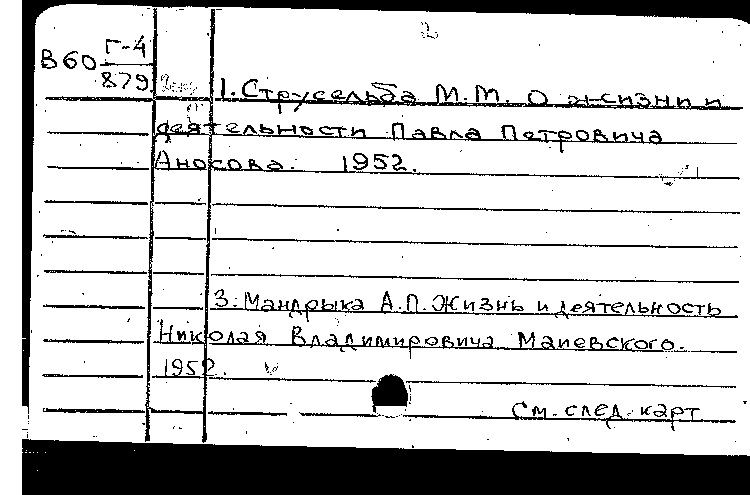 2
В60 Г-4
879
1. Струсельба М.М. О жизни и
деятельности Павла Петровича
Аносова. 1952.
3. Мандрыка А.П. Жизнь и деятельность
Николая Владимировича Маиевского.
1952.
См. след. карт